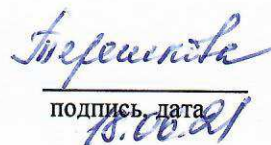 Терешкова
подпись, дата
18.06.21